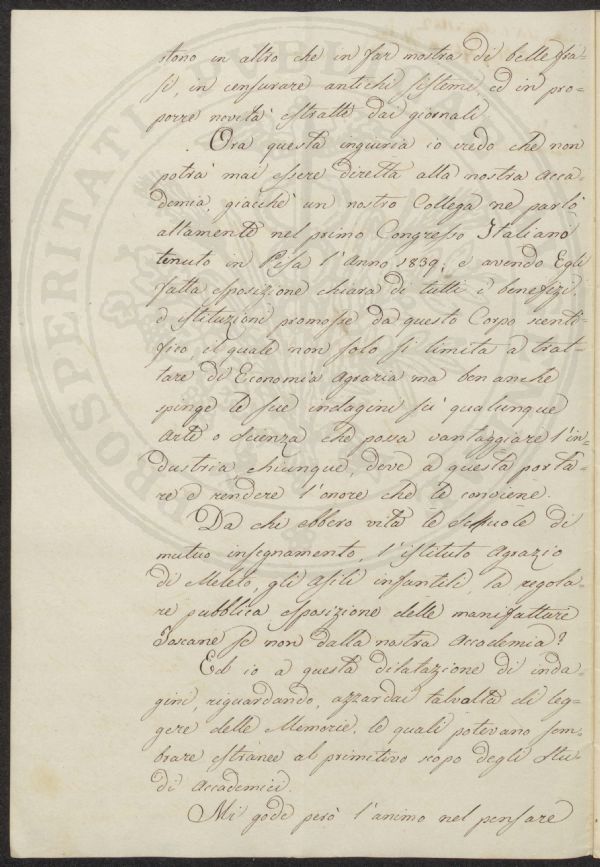 stono in altro che in far mostra di belle fra-
si, in censurare antichi sistemi, ed in pro-
porre novità estratte dai giornali.
Ora questa ingiuria io credo che non
potrà mai essere diretta alla nostra Acca-
demia, giacchè un nostro Collega ne parlò
altamente nel primo Congresso Italiano
tenuto in Pisa l'Anno 1839; e avendo Egli
fatta esposizione chiara di tutti i benefizi,
e istituzioni promosse da questo Corpo scenti-
fico, il quale non solo si limita a trat-
tare di Economia Agraria ma ben anche
spinge le sue indagini su qualunque
Arte o Scienza che possa vantaggiare l'in-
dustria, chiunque, deve a questa porta-
re e rendere l'onore che le conviene.
Da chi ebbero vita le Scuole di
mutuo insegnamento, l'istituto Agrario
di Meleto, gli Asili infantili, la regola-
re pubblica esposizione delle manifatture
Toscane se non dalla nostra Accademia?
Ed io a questa dilatazione di inda-
gini, riguardando, azzardai talvolta di leg-
gere delle Memorie, le quali potevano sem-
brare estranee al primitivo scopo degli Stu-
di Accademici.
Mi gode però l'animo nel pensare
PROSPERITATI